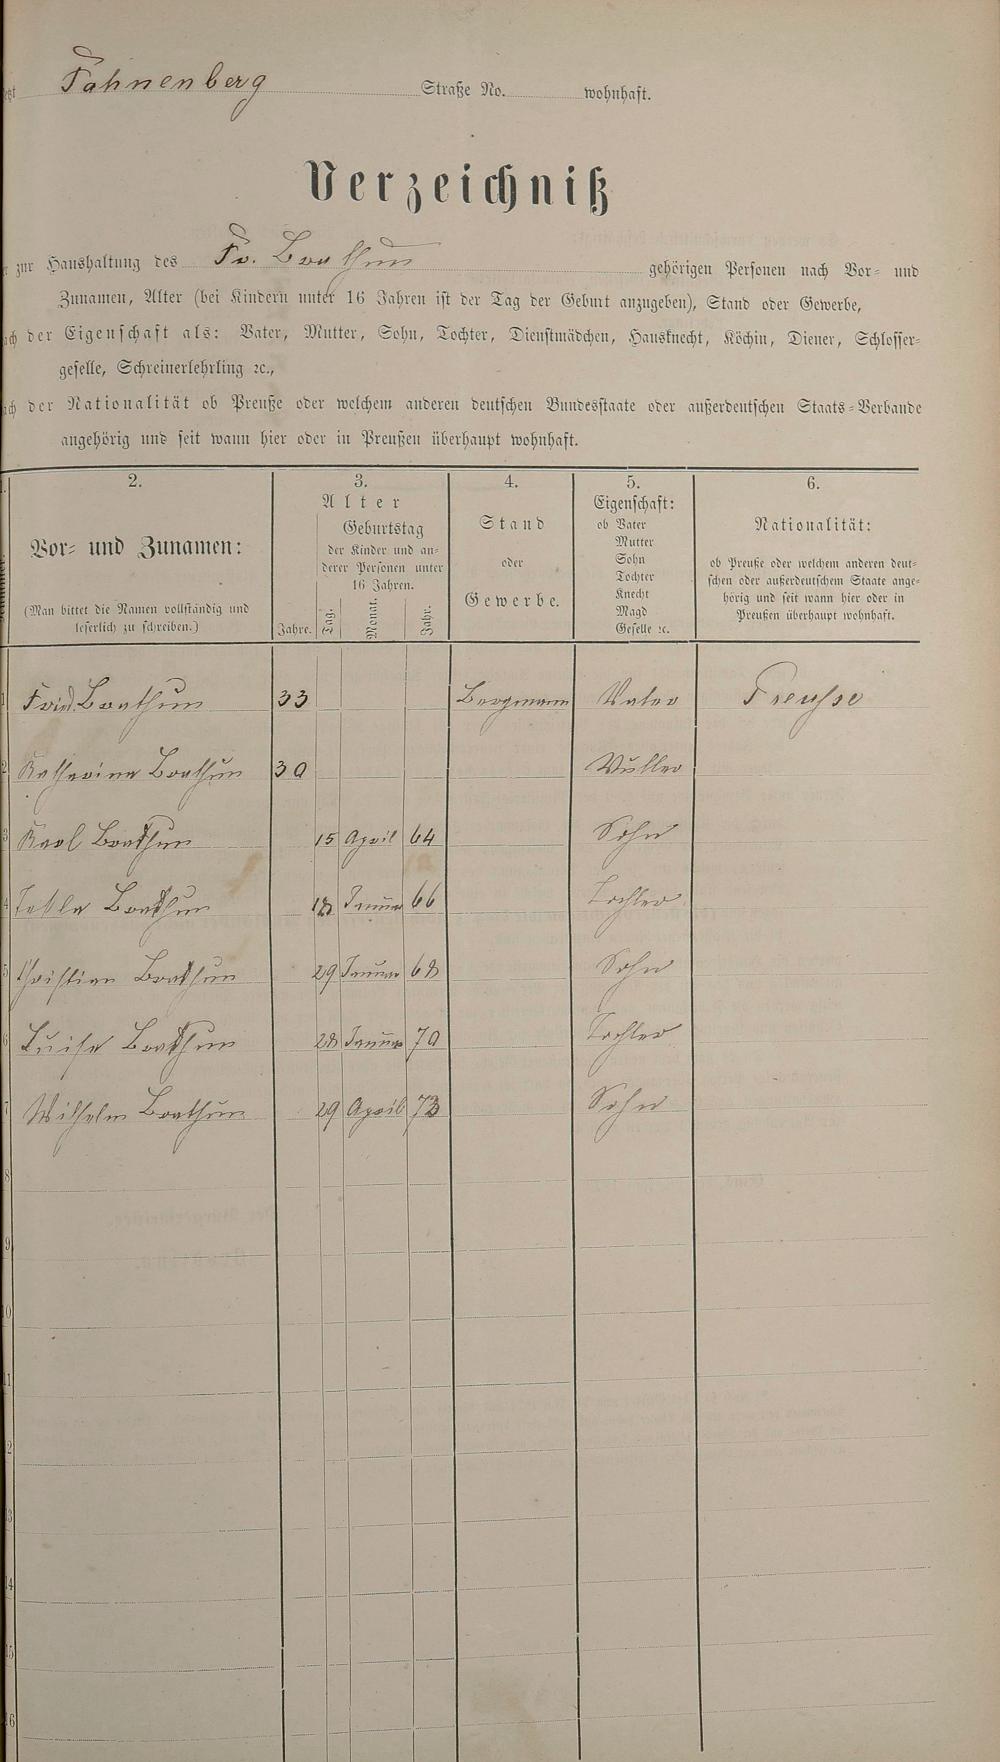 Fahnenberg Straße No. wohnhaft.
Verzeichniß
zur Haushaltung des Fr. Brathun gehörigen Personen nach Vor- und
Zunamen, Alter (bei Kindern unter 16 Jahren ist der Tag der Geburt anzugeben), Stand oder Gewerbe,
der Eigenschaft als: Vater, Mutter, Sohn, Tochter, Dienstmädchen, Hausknecht, Köchin, Diener, Schlosser-
geselle, Schreinerlehrling ꝛc.,
der Nationalität ob Preuße oder welchem anderen deutschen Bundesstaate oder außerdeutschen Staats-Verbande
angehörig und seit wann hier oder in Preußen überhaupt wohnhaft.
2. 3. 4. 5. 6.
Vor- und Zunamen:
(Man bittet die Namen vollständig und
leserlich zu schreiben.)
Alter
Jahre.
Geburtstag
der Kinder und an-
derer Personen unter
16 Jahren.
Tag. Monat. Jahr.
Stand
oder
Gewerbe.
Eigenschaft:
ob Vater
Mutter
Sohn
Tochter
Knecht
Magd
Geselle ꝛc.
Nationalität:
ob Preuße oder welchem anderen deut-
schen oder außerdeutschem Staate ange-
hörig und seit wann hier oder in
Preußen überhaupt wohnhaft.
1 Fried. Brathun 33 Bergmann Vater Preusse
2 Katharina Brathun 30 Mutter
3 Karl Brathun 15 April 64 Sohn
4 Brathun 18 Januar 66 Tochter
5 Christian Brathun 29 Januar 68 Sohn
6 Luise Brathun 28 Januar 70 Tochter
7 Wilhelm Brathun 29 April 73 Sohn
8
9
10
11
12
13
14
15
16